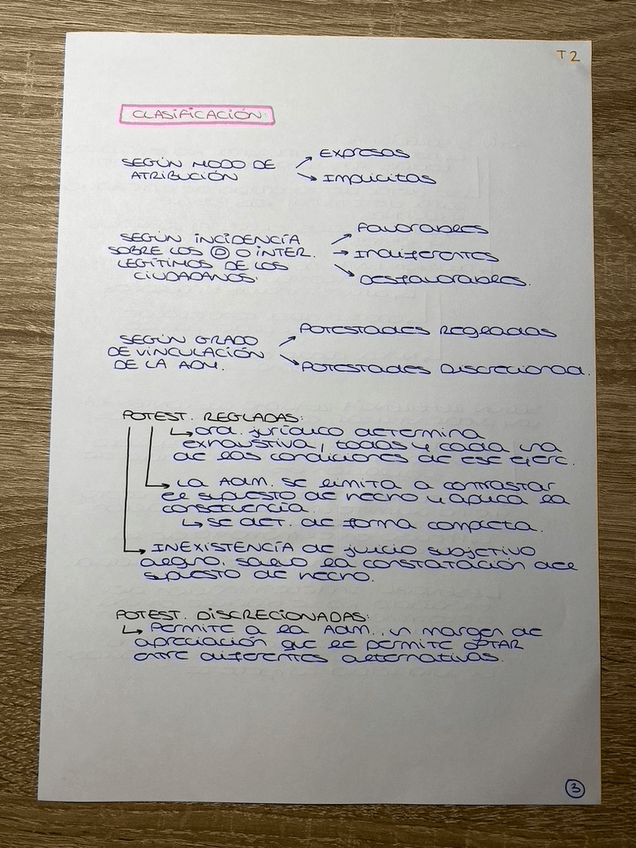 T2
CLASIFICACIÓN:
SEGÚN MODO DE
ATRIBUCIÓN
EXPRESAS
IMPLICITAS
SEGÚN INCIDENCÍA
SOBRE LOS D O INTER.
LEGÍTIMOS DE LOS
CIUDADANOS.
FAVORABLES
INDIFERENTES
DESFAVORABLES.
SEGÚN GRADO
DE VINCULACIÓN
DE LA ADM.
POTESTADES REGLADAS
POTESTADES DISCRECIONAL.
POTEST. REGLADAS:
ord. jurídico determina
exhaustiva, todas y cada una
de las condiciones de ese ejerc.
LA ADM. SE LIMITA A CONTRASTAR
EL SUPUESTO DE HECHO Y APLICA LA
CONSECUENCIA.
SE DET. DE FORMA COMPLETA.
INEXISTENCÍA de juicio subjetivo
alguno, salvo la constatación del
supuesto de hecho.
POTEST. DISCRECIONADAS:
PERMITE A LA ADM., un margen de
apreciación que le permite OPTAR
entre diferentes alternativas.
3